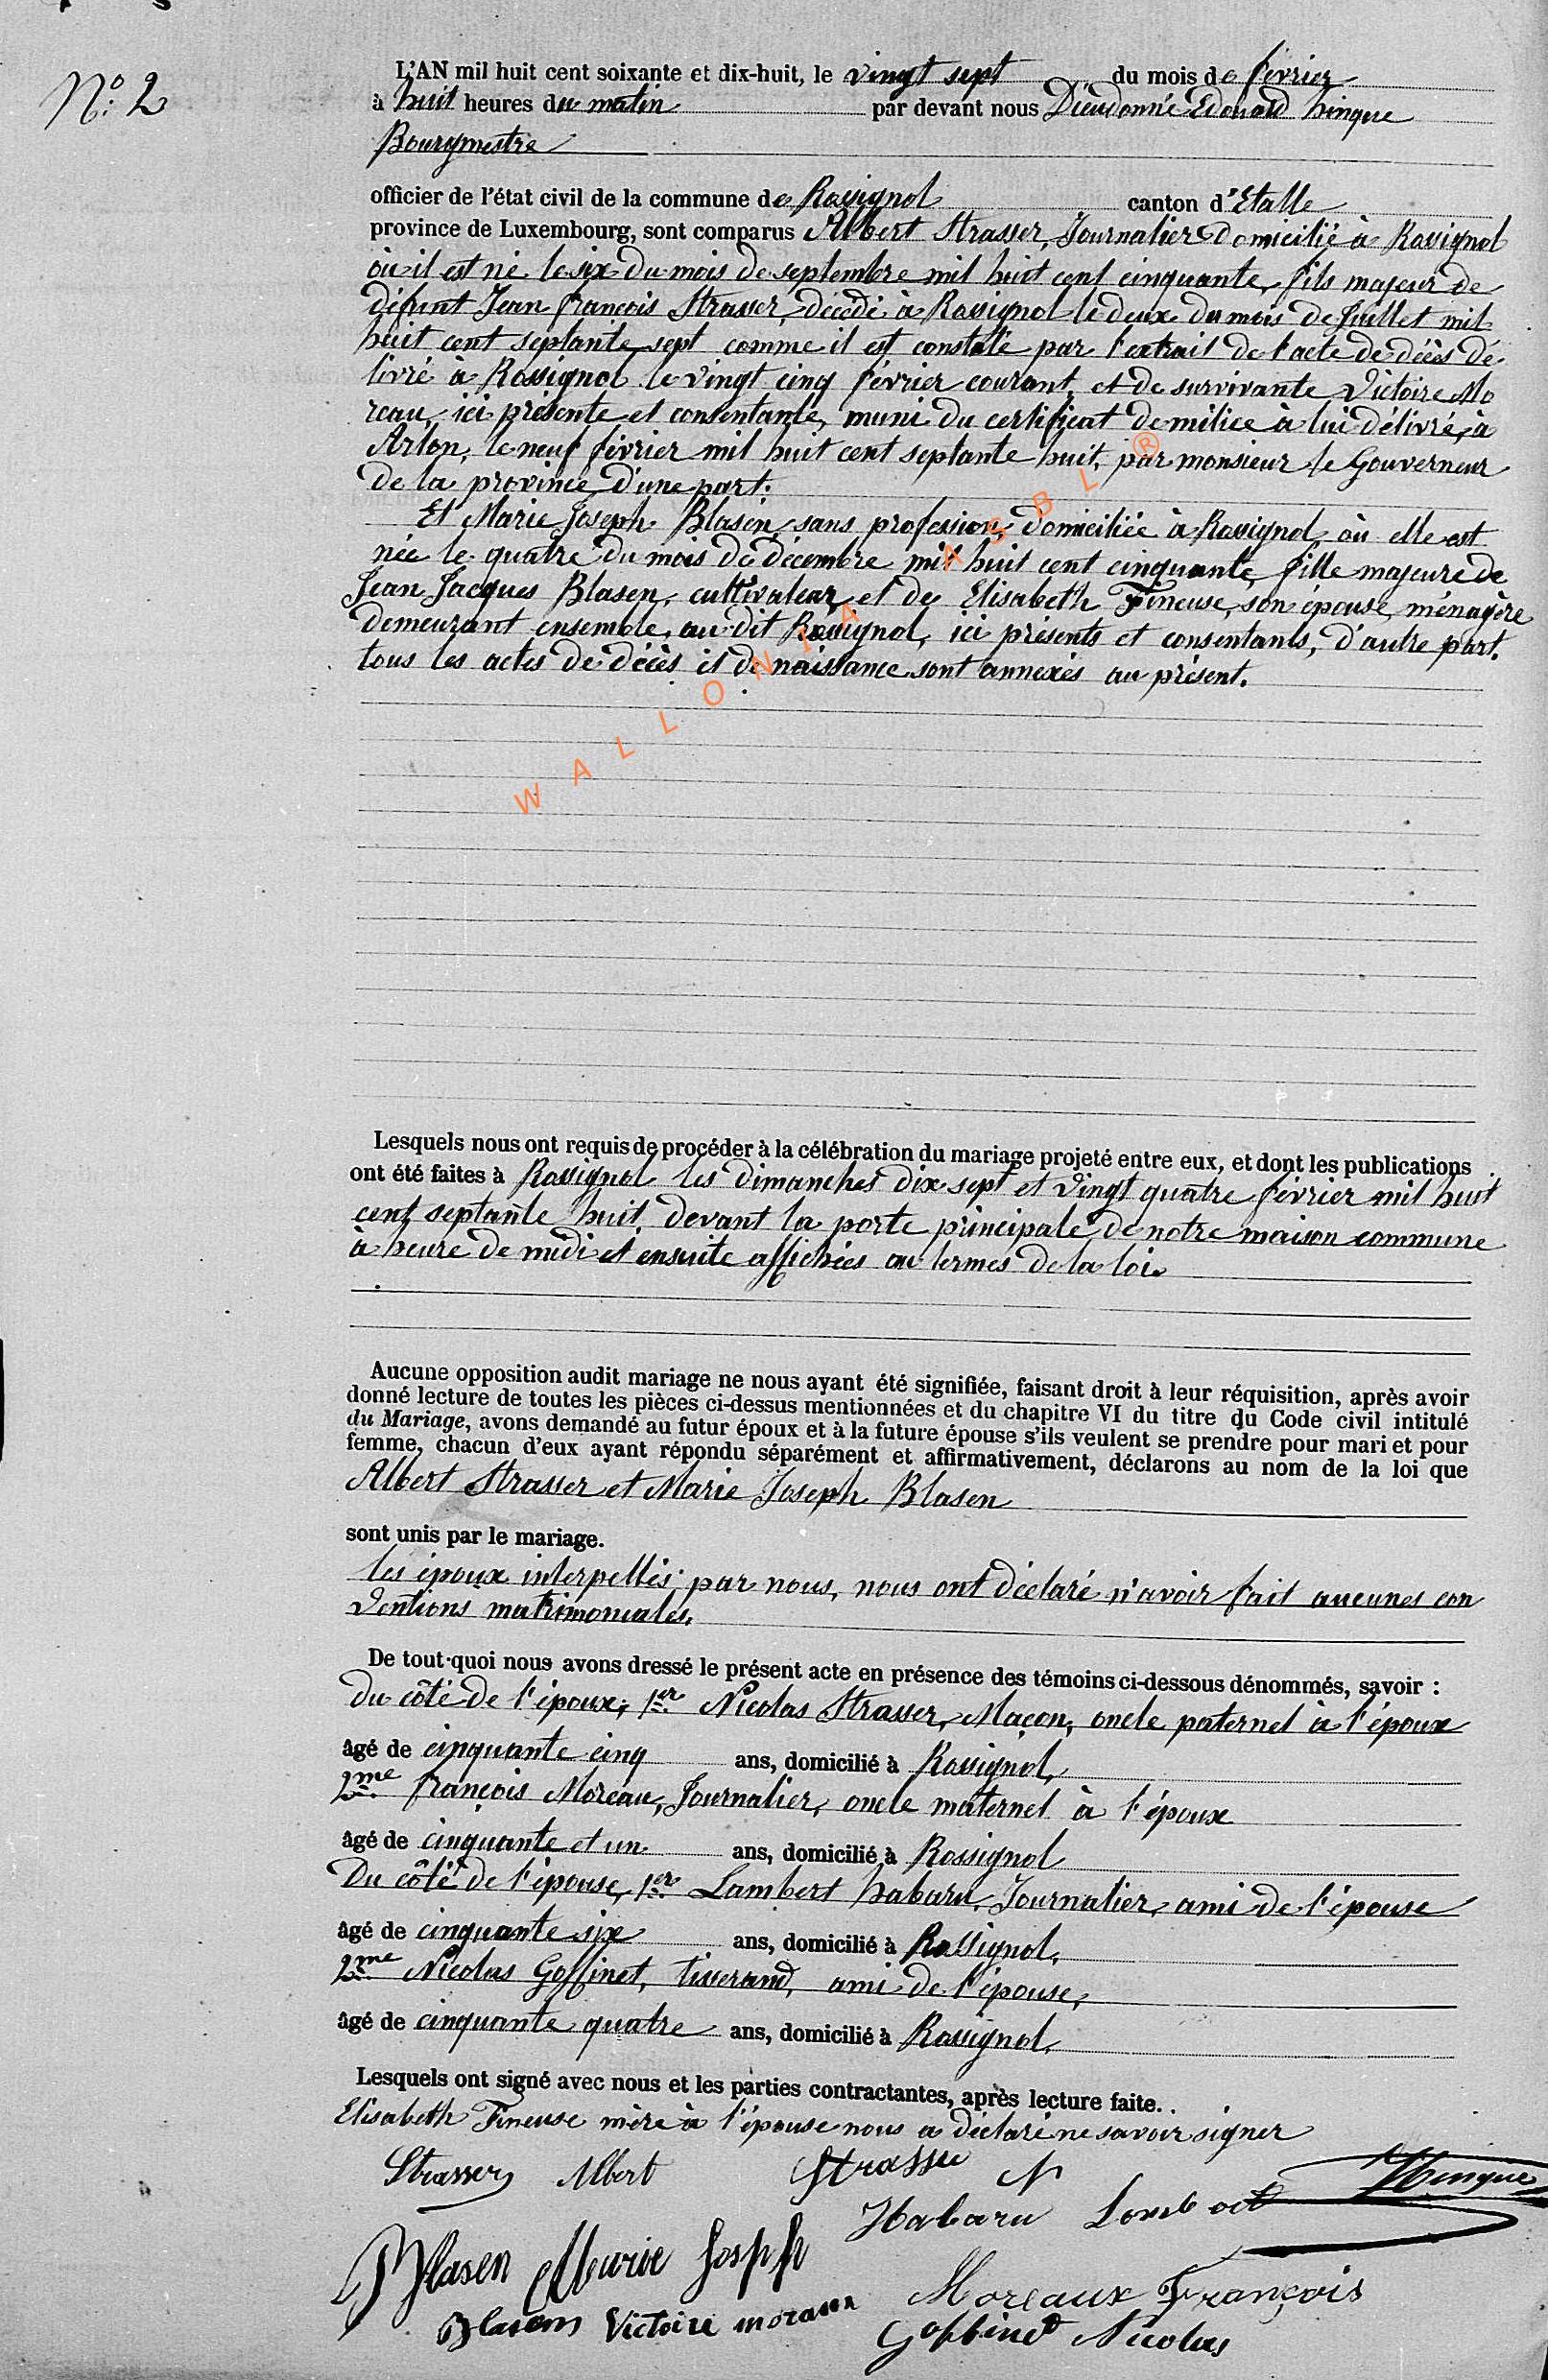 N° 2
L'AN mil huit cent soixante et dix-huit, le vingt sept du mois de février
à huit heures du matin par devant nous Dieudonné Edouard hinque
Bourgmestre
officier de l'état civil de la commune de Rossignol canton d'Etalle
province de Luxembourg, sont comparus Albert Strasser, Journalier Domicilié à Rossignol
où il est né le six du mois de septembre mil huit cent cinquante, fils majeur de
défunt Jean françois Strasser, décédé à Rossignol le deux du mois de Juillet mil
huit cent septante sept comme il est constaté par l'extrait de l'acte de décès dé
livré à Rossignol le vingt cinq février courant, et de survivante Victoire Mo
reau, ici présente et consentante, muni du certificat de milice à lui délivré, à
Arlon, le neuf février mil huit cent septante huit, par monsieur le Gouverneur
de la province, d'une part.
Et Marie Joseph Blasen, sans profession, domiciliée à Rossignol, où elle est
née le quatre du mois de décembre mil huit cent cinquante, fille majeure de
Jean Jacques Blasen, cultivateur, et de Elisabeth Fineuse, son épouse, ménagère
demeurant ensemble, au dit Rossignol, ici présents et consentants, d'autre part.
tous les actes de décès et de naissance sont annexés au présent.
WALLONIA ASBL ®
Lesquels nous ont requis de procéder à la célébration du mariage projeté entre eux, et dont les publications
ont été faites à Rossignol les dimanches dix sept et vingt quatre février mil huit
cent septante huit, devant la porte principale de notre maison commune
à heure de midi et ensuite affichées au termes de la loi.
Aucune opposition audit mariage ne nous ayant été signifiée, faisant droit à leur réquisition, après avoir
donné lecture de toutes les pièces ci-dessus mentionnées et du chapitre VI du titre du Code civil intitulé
du Mariage, avons demandé au futur époux et à la future épouse s'ils veulent se prendre pour mari et pour
femme, chacun d'eux ayant répondu séparément et affirmativement, déclarons au nom de la loi que
Albert Strasser et Marie Joseph Blasen
sont unis par le mariage.
les époux interpellés par nous, nous ont déclaré n'avoir fait aucunes con
ventions matrimoniales.
De tout quoi nous avons dressé le présent acte en présence des témoins ci-dessous dénommés, savoir :
Du côté de l'époux, 1er Nicolas Strasser, Maçon, oncle paternel à l'époux
âgé de cinquante cinq ans, domicilié à Rossignol,
2me françois Moreau, Journalier, oncle maternel à l'époux
âgé de cinquante et un ans, domicilié à Rossignol
Du côté de l'épouse, 1er Lambert habaru, Journalier, ami de l'épouse
âgé de cinquante six ans, domicilié à Rossignol,
2me Nicolas Goffinet, tisserand, ami de l'épouse,
âgé de cinquante quatre ans, domicilié à Rossignol,
Lesquels ont signé avec nous et les parties contractantes, après lecture faite.
Elisabeth Fineuse mère à l'épouse nous a déclaré ne savoir signer
Strasser Albert Strasser N Hinque
Habaru Lambert
Blasen Marie Joseph
Moreaux François
Blasen Victoire moraux
Goffinet Nicolas